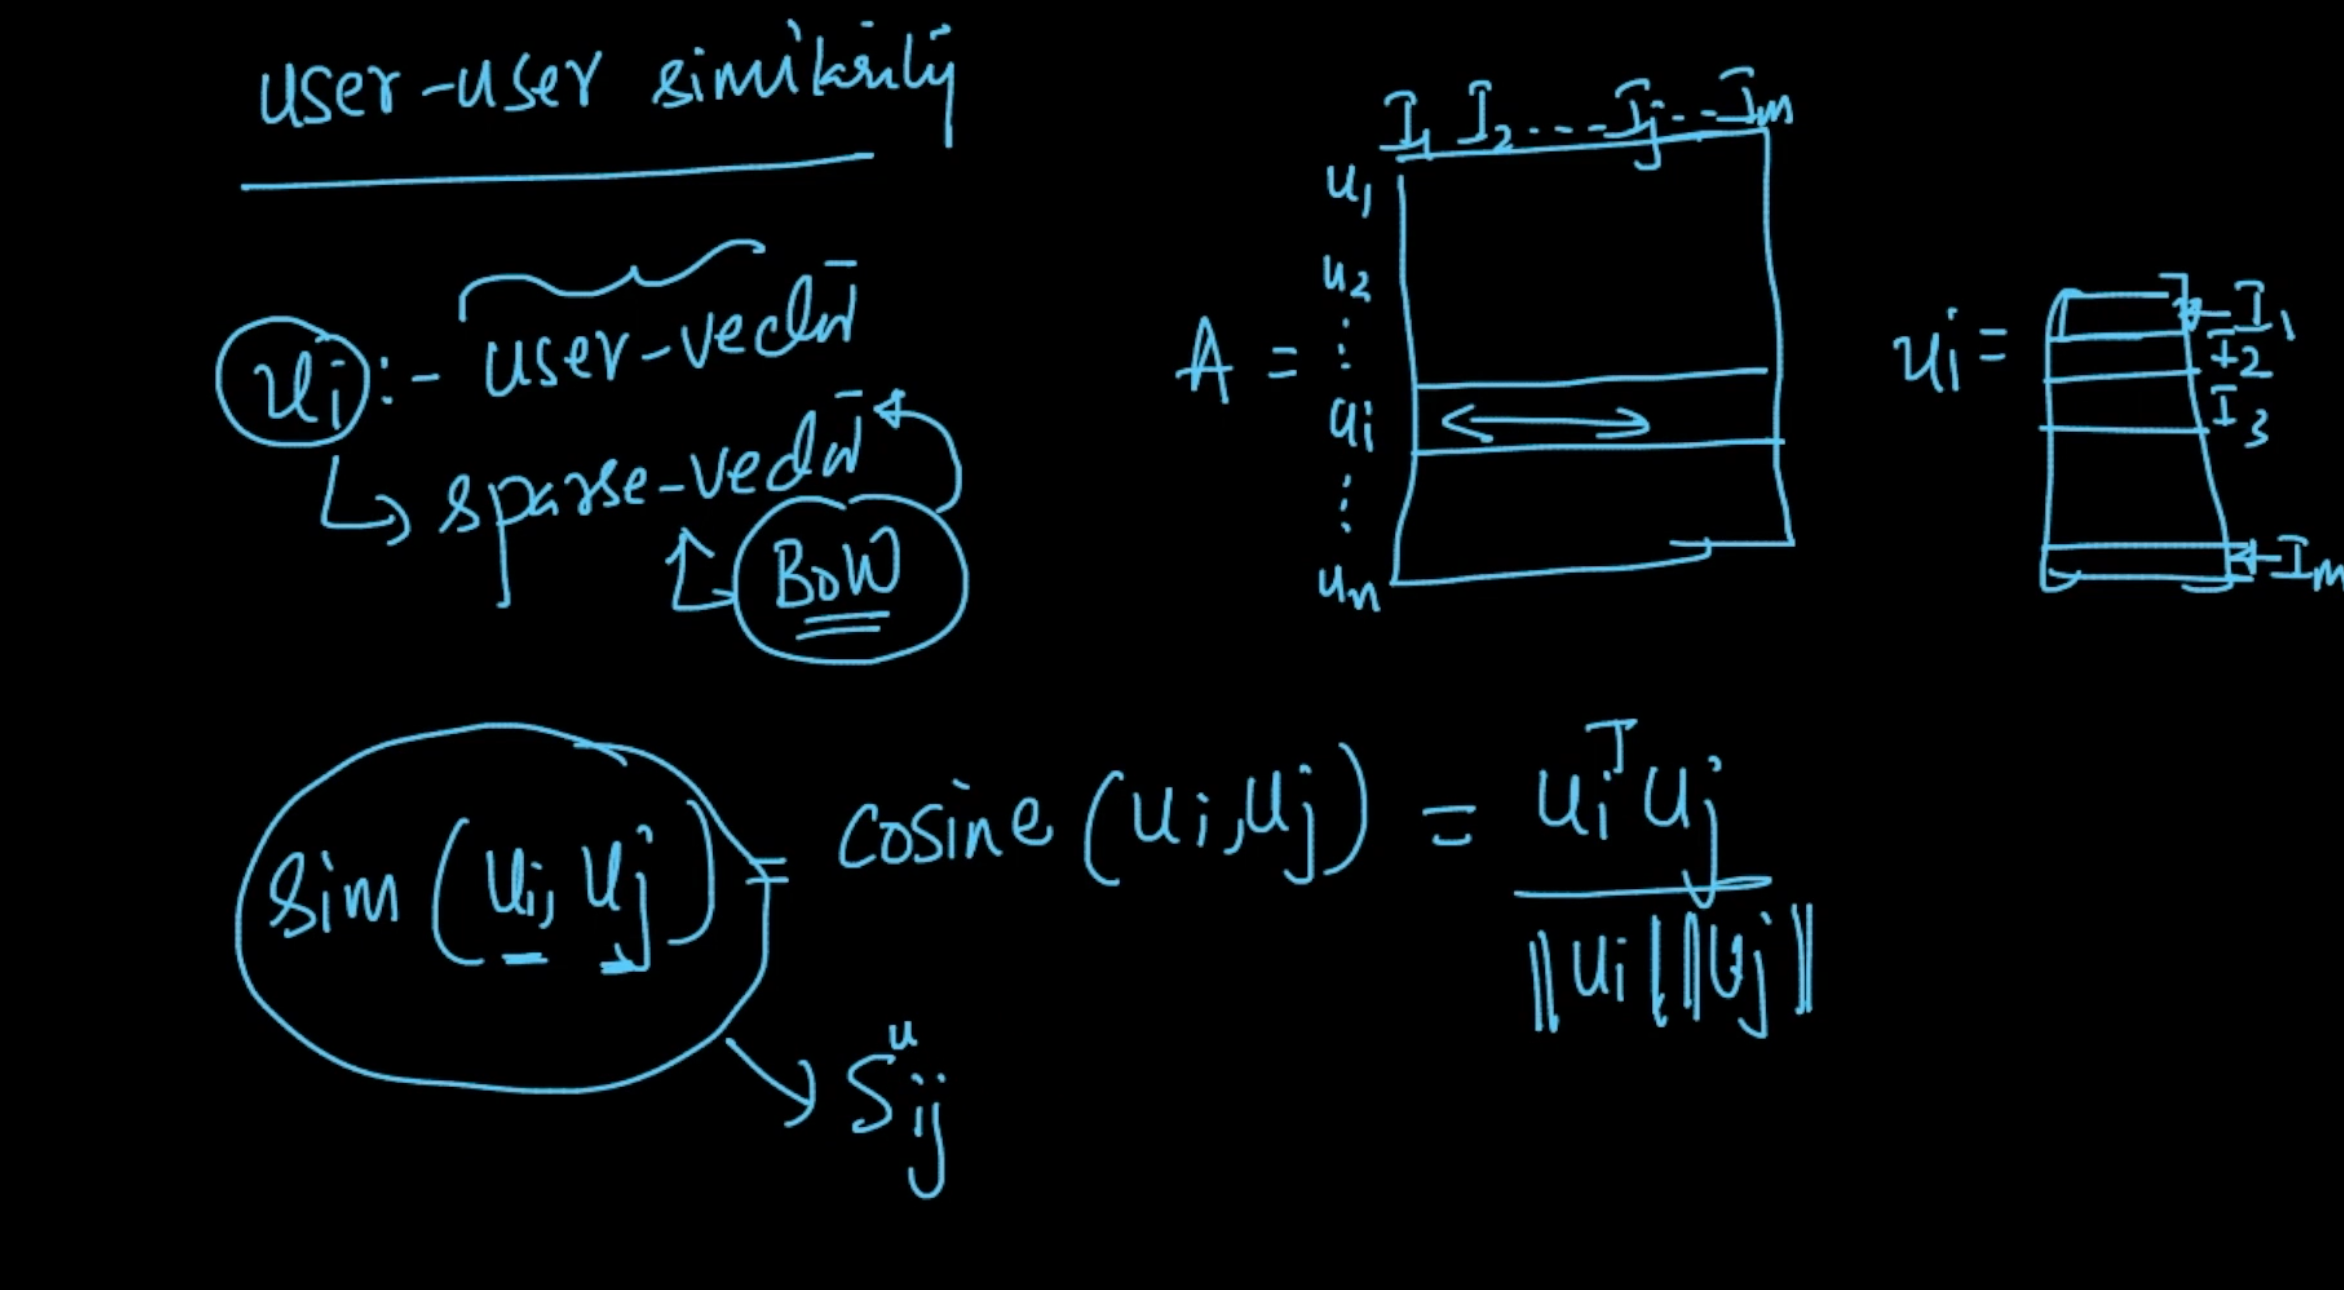 user-user similarity
uᵢ :- user-vector
↳ sparse-vector
BoW
A =
I₁ I₂ ... Iⱼ .. Iₘ
u₁
u₂
⋮
uᵢ
⋮
uₙ
uᵢ =
I₁
I₂
I₃
Iₘ
Sim (uᵢ, uⱼ) = cosine (uᵢ, uⱼ) = uᵢᵀ uⱼ / ||uᵢ|| ||uⱼ||
Sᵘᵢⱼ